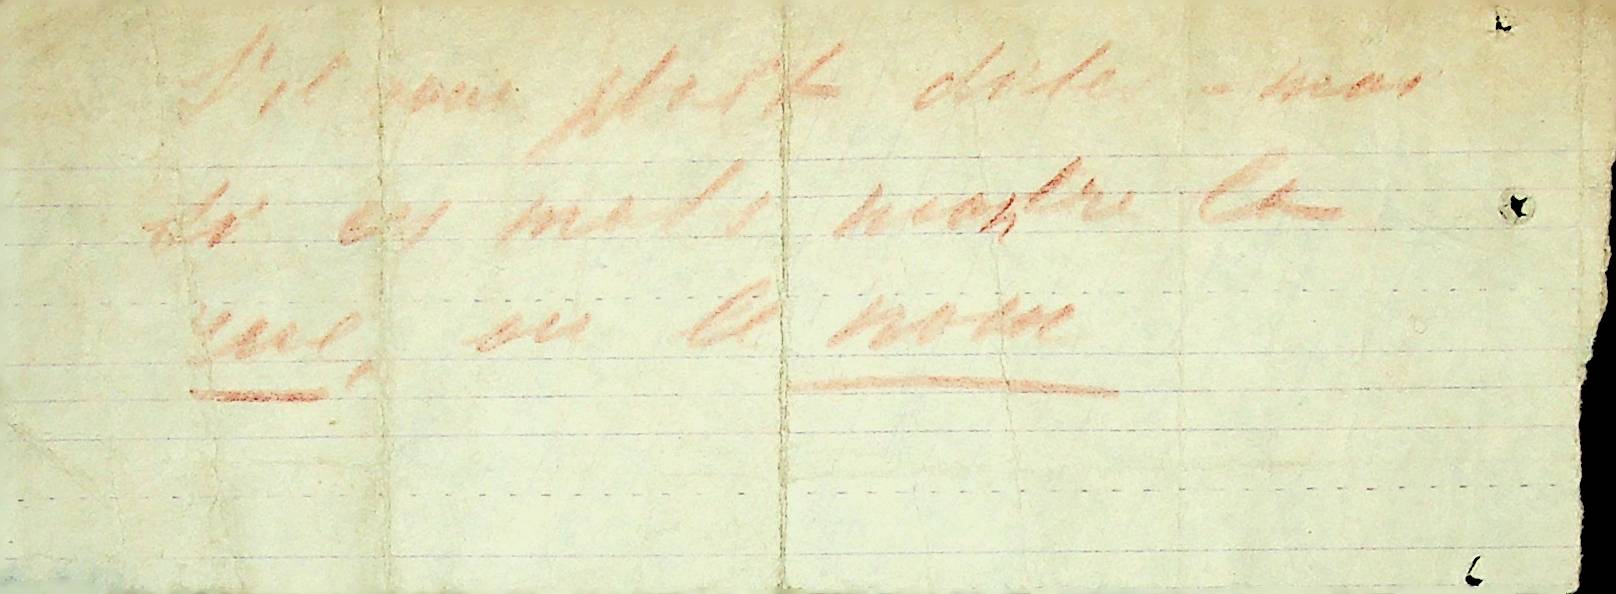 S'il vous plait dites-moi
si ces mots montre la
rue, ou le nom